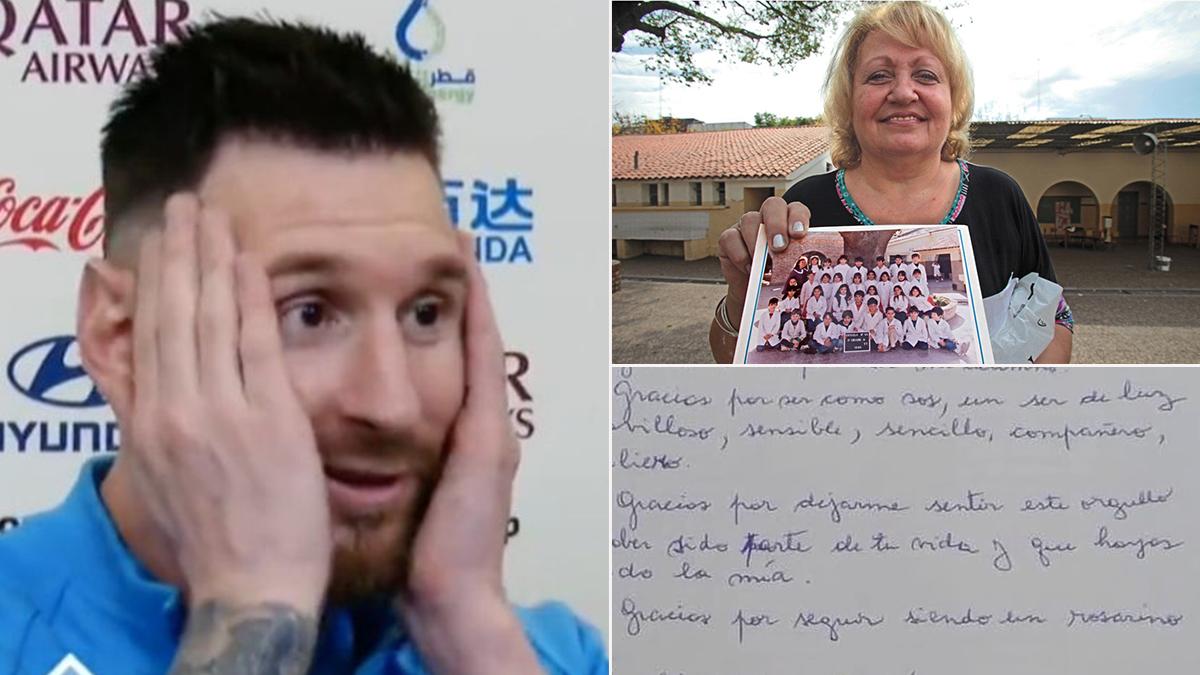 QATAR
AIRWA
قطر
Coca-C
HYUND
Gracias por ser como sos, un ser de luz
villoso, sensible, sencillo, compañero,
liero.
Gracias por dejarme sentir este orgullo
ber sido parte de tu vida y que hayas
do la mía.
Gracias por seguir siendo un rosarino